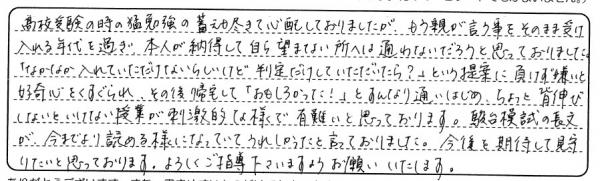 高校受験の時の猛勉強の蓄えも尽きて心配しておりましたが、もう親が言う事をそのまま受け
入れる年代を過ぎ、本人が納得して自ら望まない所へは通わないだろうと思っておりました。
「なかなか入れていただけないらしいけど判定だけしていただいたら?」という提案に負けず嫌いと
好奇心をくすぐられ、その後帰宅して「おもしろかった!」とすんなり通いはじめ、ちょっと背伸び
しないといけない授業が刺激的な様で有難いと思っております。駿台模試の長文
が、今までより読める様になっていてうれしかったと言っておりました。今後を期待して見守
りたいと思っております。よろしくご指導下さいますようお願いいたします。